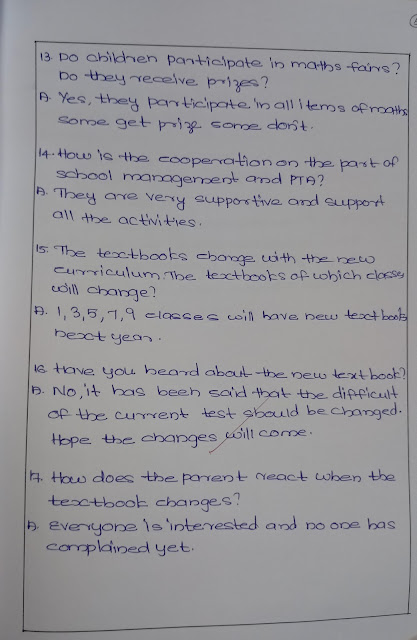 13. Do children participate in maths fairs?
Do they receive prizes?
A. Yes, they participate in all items of maths
some get prize some don't.
14. How is the cooperation on the part of
school management and PTA?
A. They are very supportive and support
all the activities.
15. The textbooks change with the new
curriculum. The textbooks of which classes
will change?
A. 1, 3, 5, 7, 9 classes will have new textbooks
next year.
16. Have you heard about the new textbook?
A. No, it has been said that the difficult
of the current test should be changed.
Hope the changes will come.
17. How does the parent react when the
textbook changes?
A. everyone is interested and no one has
complained yet.